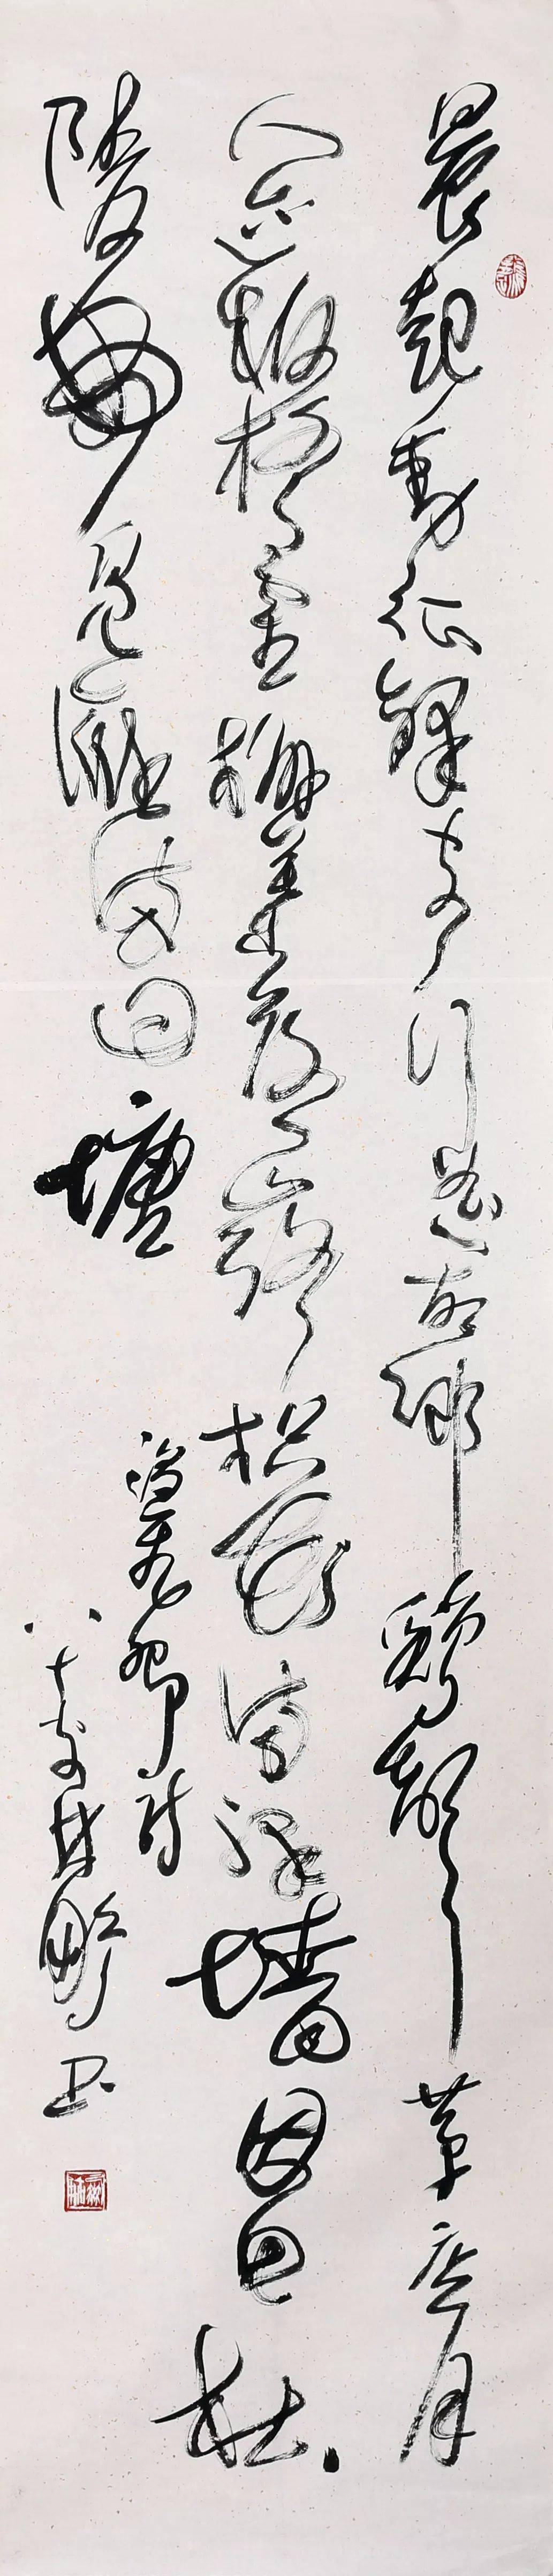 晨起動征鐸客行悲故鄉雞聲草店月
人迹板橋霜槲葉落山路枳花滿驛牆因思杜
陵夢鳧雁滿回塘
溫庭筠詩
八十林鵬書